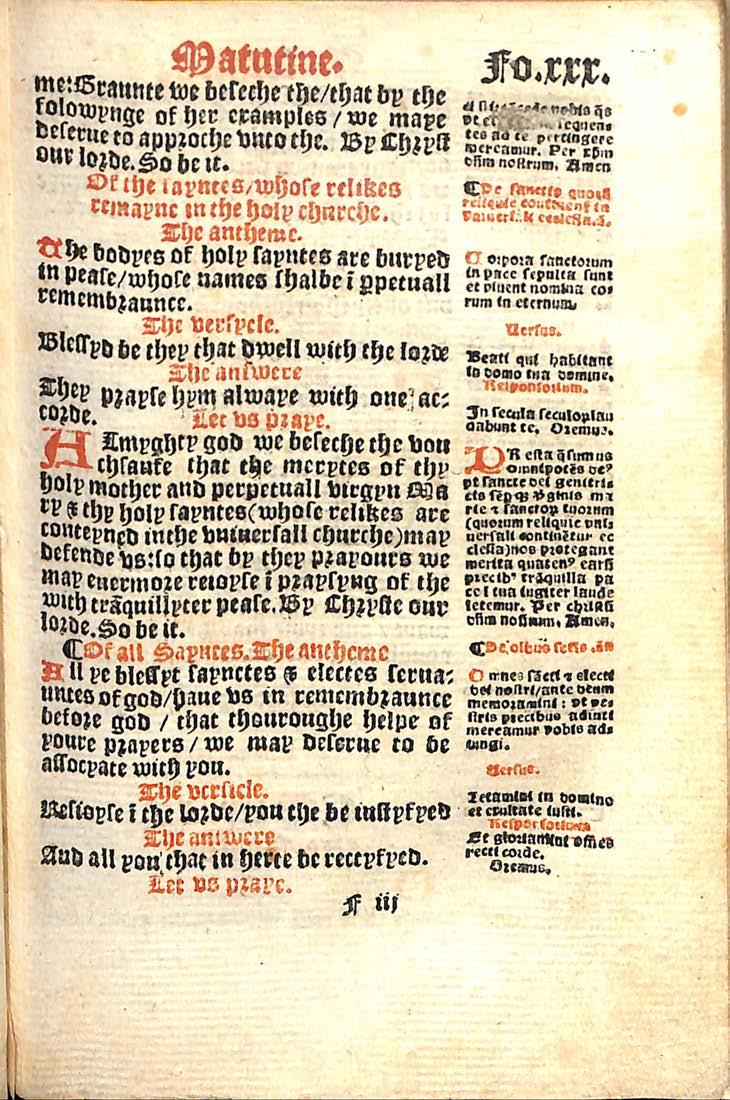 Matutine.
Fo.xxx.
me:Graunte we beseche the/that by the
folowynge of her examples / we maye
deserue to approche vnto the. By Chryst
our lorde. So be it.
Of the sayntes/whose relikes
remayne in the holy churche.
The antheme.
The bodyes of holy sayntes are buryed
in pease/whose names shalbe ī ꝑpetuall
remembraunce.
The versycle.
Blessyd be they that dwell with the lorde
The answere
They prayse hym alwaye with one ac-
corde.
Let vs praye.
Almyghty god we beseche the vou
chsaufe that the merytes of thy
holy mother and perpetuall virgyn Ma
ry & thy holy sayntes(whose relikes are
conteyned inthe vniuersall churche)may
defende vs:so that by they prayours we
may euermore reioyse ī praysyng of the
with trāquillyter pease. By Chryste our
lorde. So be it.
¶Of all Sayntes. The antheme
All ye blessyt saynctes & electes serua-
untes of god/haue vs in remembraunce
before god / that thouroughe helpe of
youre prayers / we may deserue to be
assocyate with you.
The versicle.
Resioyse ī the lorde/you the be iustyfyed
The answere
And all you that in herte be rectyfyed.
Let vs praye.
F iij
nobis q̄s
sequens
tes ad te pertingere
mereamur. Per xp̄m
dn̄m nostrum. Amen
¶De sanctis quorū
reliquie continent in
Corpora sanctorum
in pace sepulta sunt
et viuent nomina eo-
rum in eternum.
Uersus.
Beati qui habitant
in domo tua domine.
Responsorium.
In secula seculoꝝ lau
dabunt te. Oremus.
PResta q̄sumus
omnipotēs de⁹
vt sancte dei genitri-
cis sēꝑ qꝫ v̄ginis ma
rie ⁊ sanctoꝝ tuorum
(quorum reliquie vni-
uersali continētur ec
clesia)nos protegant
merita quaten⁹ earū
precib⁹ trāquilla pa
ce ī tua iugiter laude
letemur. Per christū
dn̄m nostrum. Amen.
¶De oībus sctis.
Omnes sācti ⁊ electi
dei nostri/ante deum
memoramini : vt ve-
stris precibus adiuti
mereamur vobis ad-
iungi.
Uersus.
Letamini in domino
et exultate iusti.
Responsorium
Et gloriamini oīnes
recti corde.
Oremus.